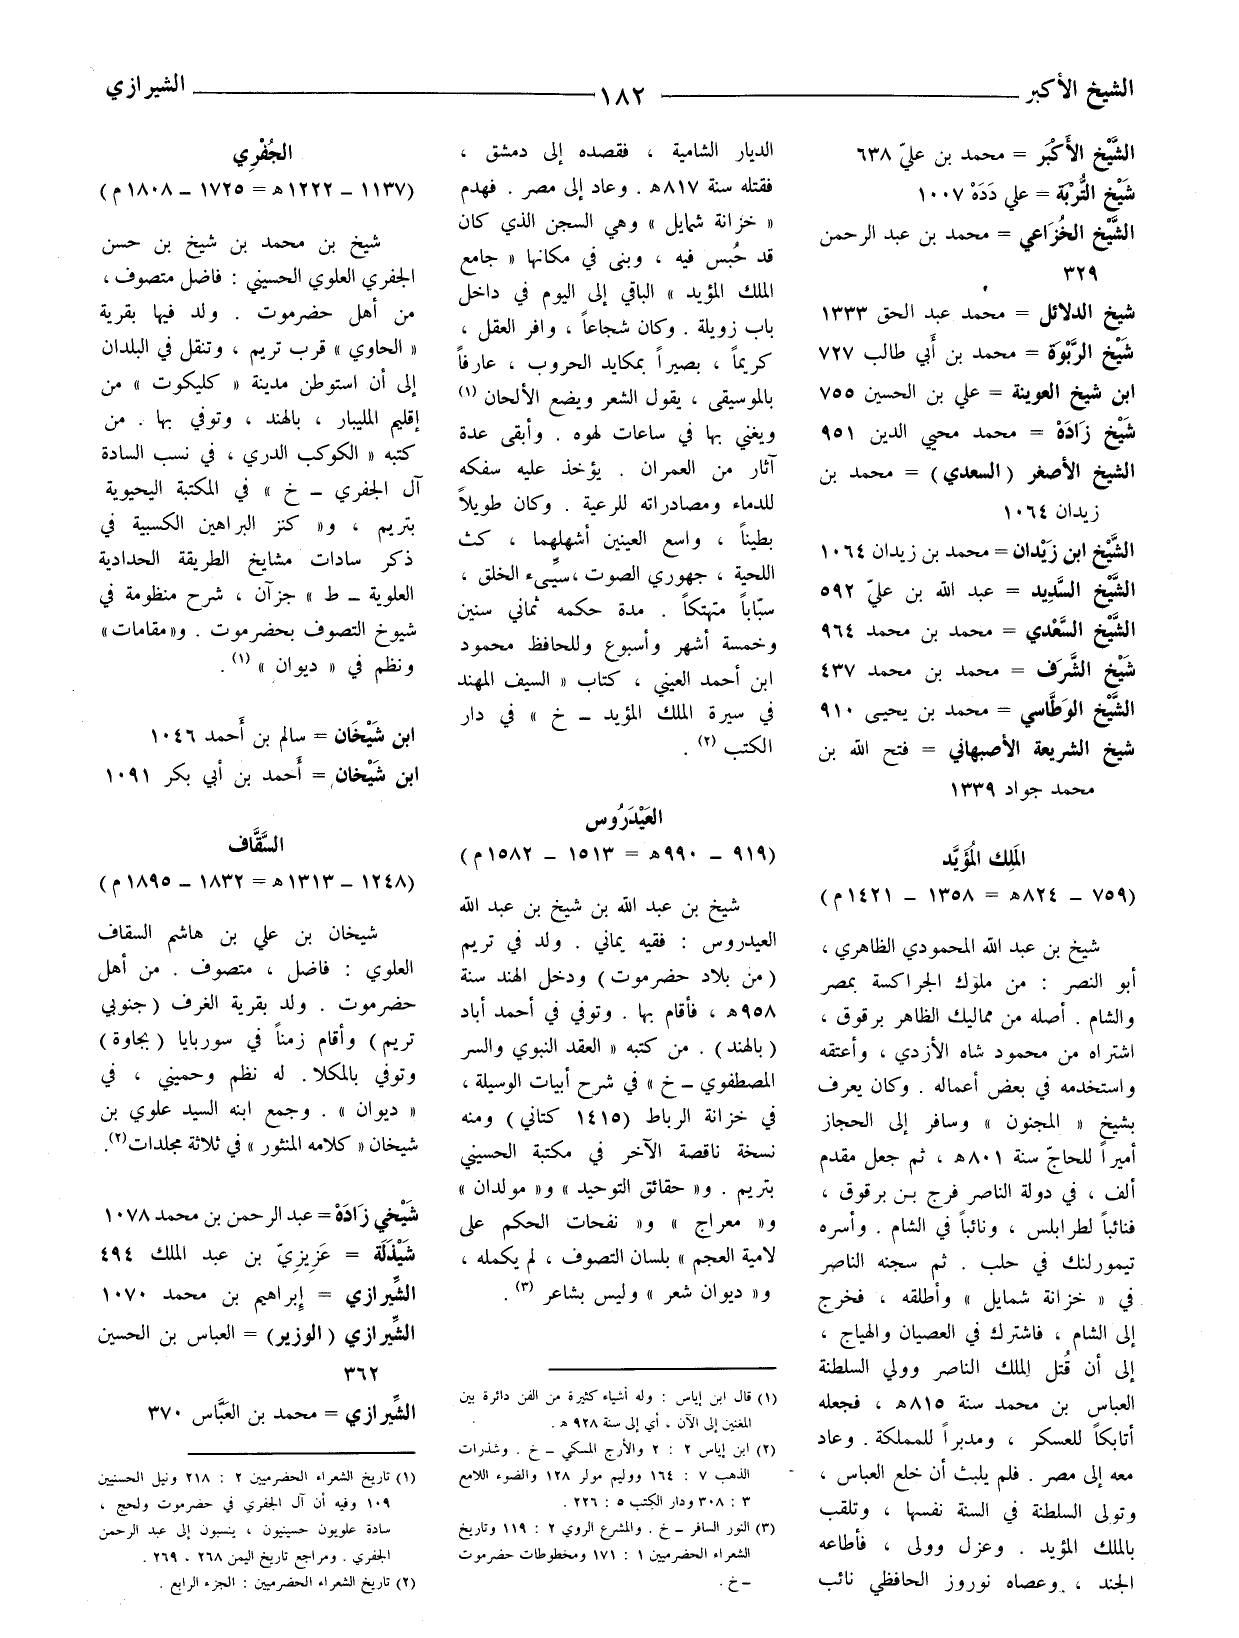 الشيخ الأكبر ١٨٢ الشيرازي
الشَّيْخ الأَكْبَر = محمد بن عليّ ٦٣٨
شَيْخ التُّرْبَة = علي دَدَهْ ١٠٠٧
الشَّيْخ الخُزَاعي = محمد بن عبد الرحمن
٣٢٩
شيخ الدلائل = محمد عبد الحق ١٣٣٣
شَيْخ الرَّبْوَة = محمد بن أبي طالب ٧٢٧
ابن شيخ العوينة = علي بن الحسين ٧٥٥
شَيْخ زَادَهْ = محمد محيي الدين ٩٥١
الشيخ الأصغر (السعدي) = محمد بن
زيدان ١٠٦٤
الشَّيْخ ابن زَيْدان = محمد بن زيدان ١٠٦٤
الشَّيْخ السَّدِيد = عبد الله بن عليّ ٥٩٢
الشَّيْخ السَّعْدي = محمد بن محمد ٩٦٤
شَيْخ الشَّرَف = محمد بن محمد ٤٣٧
الشَّيْخ الوَطَّاسي = محمد بن يحيى ٩١٠
شيخ الشريعة الأصبهاني = فتح الله بن
محمد جواد ١٣٣٩
المَلِك المُؤَيَّد
(٧٥٩ – ٨٢٤هـ = ١٣٥٨ – ١٤٢١م)
شيخ بن عبد الله المحمودي الظاهري ،
أبو النصر : من ملوك الجراكسة بمصر
والشام . أصله من مماليك الظاهر برقوق ،
اشتراه من محمود شاه الأزدي ، وأعتقه
واستخدمه في بعض أعماله . وكان يعرف
بشيخ « المجنون » وسافر إلى الحجاز
أميراً للحاجّ سنة ٨٠١هـ ، ثم جعل مقدم
ألف ، في دولة الناصر فرج بن برقوق ،
فنائباً لطرابلس ، ونائباً في الشام . وأسره
تيمورلنك في حلب . ثم سجنه الناصر
في « خزانة شمايل » وأطلقه ، فخرج
إلى الشام ، فاشترك في العصيان والهياج ،
إلى أن قُتل الملك الناصر وولي السلطنة
العباس بن محمد سنة ٨١٥هـ ، فجعله
أتابكاً للعسكر ، ومدبراً للمملكة . وعاد
معه إلى مصر . فلم يلبث أن خلع العباس ،
وتولى السلطنة في السنة نفسها ، وتلقب
بالملك المؤيد . وعزل وولى ، فأطاعه
الجند ، وعصاه نوروز الحافظي نائب
الديار الشامية ، فقصده إلى دمشق ،
فقتله سنة ٨١٧هـ . وعاد إلى مصر . فهدم
« خزانة شمايل » وهي السجن الذي كان
قد حُبس فيه ، وبنى في مكانها « جامع
الملك المؤيد » الباقي إلى اليوم في داخل
باب زويلة . وكان شجاعاً ، وافر العقل ،
كريماً ، بصيراً بمكايد الحروب ، عارفاً
بالموسيقى ، يقول الشعر ويضع الألحان (١)
ويغني بها في ساعات لهوه . وأبقى عدة
آثار من العمران . يؤخذ عليه سفكه
للدماء ومصادراته للرعية . وكان طويلاً
بطيناً ، واسع العينين أشهلهما ، كث
اللحية ، جهوري الصوت ، سيّىء الخلق ،
سبّاباً متهتكاً . مدة حكمه ثماني سنين
وخمسة أشهر وأسبوع وللحافظ محمود
ابن أحمد العيني ، كتاب « السيف المهند
في سيرة الملك المؤيد – خ » في دار
الكتب (٢) .
العَيْدَرُوس
(٩١٩ – ٩٩٠هـ = ١٥١٣ – ١٥٨٢م)
شيخ بن عبد الله بن شيخ بن عبد الله
العيدروس : فقيه يماني . ولد في تريم
(من بلاد حضرموت) ودخل الهند سنة
٩٥٨هـ ، فأقام بها . وتوفي في أحمد أباد
(بالهند) . من كتبه « العقد النبوي والسر
المصطفوي – خ » في شرح أبيات الوسيلة ،
في خزانة الرباط (١٤١٥ كتاني) ومنه
نسخة ناقصة الآخر في مكتبة الحسيني
بتريم . و« حقائق التوحيد » و« مولدان »
و« معراج » و« نفحات الحكم على
لامية العجم » بلسان التصوف ، لم يكمله ،
و« ديوان شعر » وليس بشاعر (٣) .
(١) قال ابن إياس : وله أشياء كثيرة من الفن دائرة بين
المغنين إلى الآن ، أي إلى سنة ٩٢٨ هـ .
(٢) ابن إياس ٢ : ٢ والأرج المسكي – خ . وشذرات
الذهب ٧ : ١٦٤ ووليم مولر ١٢٨ والضوء اللامع
٣ : ٣٠٨ ودار الكتب ٥ : ٢٢٦ .
(٣) النور السافر – خ . والمشرع الروي ٢ : ١١٩ وتاريخ
الشعراء الحضرميين ١ : ١٧١ ومخطوطات حضرموت
– خ .
الجُفْرِي
(١١٣٧ – ١٢٢٢هـ = ١٧٢٥ – ١٨٠٨م)
شيخ بن محمد بن شيخ بن حسن
الجفري العلوي الحسيني : فاضل متصوف ،
من أهل حضرموت . ولد فيها بقرية
« الحاوي » قرب تريم ، وتنقل في البلدان
إلى أن استوطن مدينة « كليكوت » من
إقليم المليبار ، بالهند ، وتوفي بها . من
كتبه « الكوكب الدري ، في نسب السادة
آل الجفري – خ » في المكتبة اليحيوية
بتريم ، و« كنز البراهين الكسبية في
ذكر سادات مشايخ الطريقة الحدادية
العلوية – ط » جزآن ، شرح منظومة في
شيوخ التصوف بحضرموت . و« مقامات »
ونظم في « ديوان » (١) .
ابن شَيْخَان = سالم بن أَحمد ١٠٤٦
ابن شَيْخان = أَحمد بن أبي بكر ١٠٩١
السَّقَّاف
(١٢٤٨ – ١٣١٣هـ = ١٨٣٢ – ١٨٩٥م)
شيخان بن علي بن هاشم السقاف
العلوي : فاضل ، متصوف . من أهل
حضرموت . ولد بقرية الغرف (جنوبي
تريم) وأقام زمناً في سوربايا (بجاوة)
وتوفي بالمكلا. له نظم وحميني ، في
« ديوان » . وجمع ابنه السيد علوي بن
شيخان « كلامه المنثور » في ثلاثة مجلدات (٢).
شَيْخي زَادَهْ = عبد الرحمن بن محمد ١٠٧٨
شَيْذَلَة = عَزِيزِيّ بن عبد الملك ٤٩٤
الشِّيرازي = إبراهيم بن محمد ١٠٧٠
الشِّيرازي (الوزير) = العباس بن الحسين
٣٦٢
الشِّيرازي = محمد بن العَبَّاس ٣٧٠
(١) تاريخ الشعراء الحضرميين ٢ : ٢١٨ ونيل الحسنيين
١٠٩ وفيه أن آل الجفري في حضرموت ولحج ،
سادة علويون حسينيون ، ينسبون إلى عبد الرحمن
الجفري . ومراجع تاريخ اليمن ٢٦٨ ، ٢٦٩ .
(٢) تاريخ الشعراء الحضرميين : الجزء الرابع .